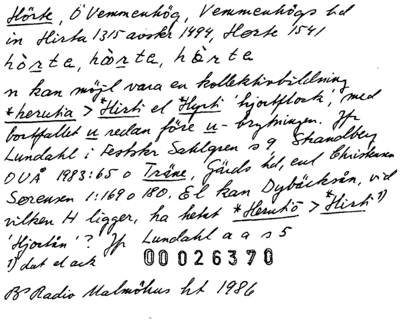 Hörte, Ö Vemmenhög, Vemmenhögs hd
in Hirta 1315 avskr 1494, Horte 1541
hò̱rta, hòrta, hò̱rta
n kan möjl vara en kollektivbildning
*herutia > *Hirti el *Hyrti 'hjortflock', med
bortfallet u redan före u-brytningen. Jfr
Lundahl i Festskr Sahlgren s 9 Strandberg
OVÅ 1983:65 o Träne, Gärds hd, enl Christensen
Sørensen 1:169 o 180. El kan Dybäcksån, vid
vilken H ligger, ha hetat *Herutiō > *Hirti 1)
'Hjortån'? Jfr Lundahl a a s 5
1) dat el ack 00026370
Radio Malmöhus ht 1986